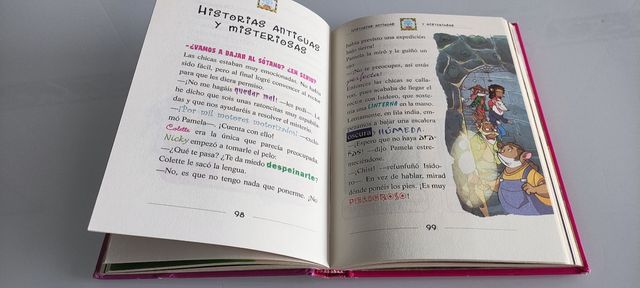 HISTORIAS ANTIGUAS
Y MISTERIOSAS
-¿VAMOS A BAJAR AL SÓTANO? ¿EN SERIO?
Las chicas estaban muy emocionadas. No había
sido fácil, pero al final logré convencer al rector
para que les diera permiso.
—¡No me hagáis quedar mal! —les pedí—. Le
he dicho que sois unas ratoncitas muy espabila-
das y que nos ayudaréis a resolver el misterio.
—¡Por mil motores motorizados! —excla-
mó Pamela—. ¡Cuenta con ello!
Colette era la única que parecía preocupada.
Nicky empezó a tomarle el pelo:
—¿Qué te pasa? ¿Te da miedo despeinarte?
Colette le sacó la lengua.
—No, es que no tengo nada que ponerme. ¡No
98
HISTORIAS ANTIGUAS Y MISTERIOSAS
había previsto una expedición
bajo tierra!
Pamela la miró y le guiñó un
—¡No te preocupes, así estás
perfecta!
Entonces las chicas se calla-
ron, pues acababa de llegar el
rector con Isidoro, que soste-
nía una LINTERNA en la mano.
Lentamente, en fila india, em-
pezamos a bajar una escalera
oscura y HÚMEDA.
—¡Espero que no haya ara-
ñas! —dijo Pamela estre-
meciéndose.
—¡Chist! —refunfuñó Isido-
ro—. En vez de hablar, mirad
dónde ponéis los pies. ¡Es muy
PELIGROSO!
99